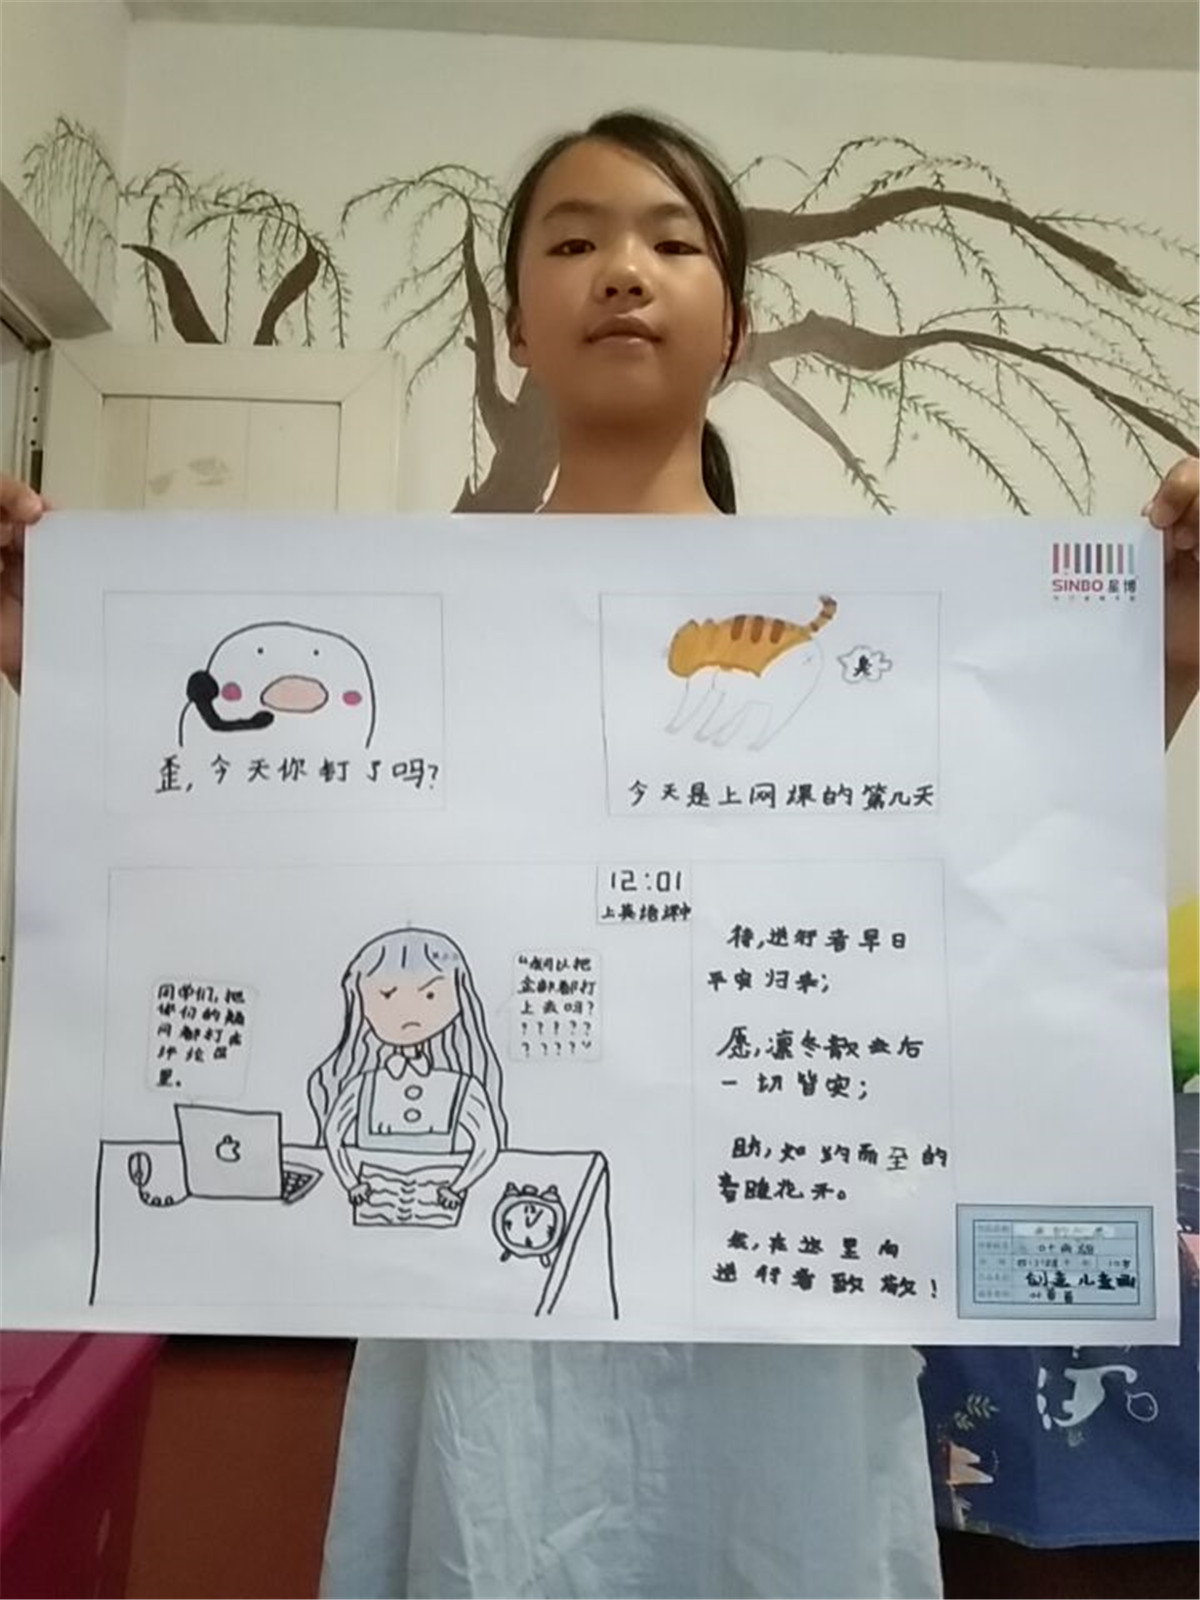 SINBO 星博
歪，今天你钉了吗？
今天是上网课的第几天
12:01
上英语课中
同学们，把
你们的疑
问都打在
评论区
里。
“我可以把
全部都打
上去吗？
？？？？？
？？？？”
待，逆行者早日
平安归来；
愿，凛冬散去后
一切皆安；
盼，如约而至的
春暖花开。
我，在这里向
逆行者致敬！
创意儿童画